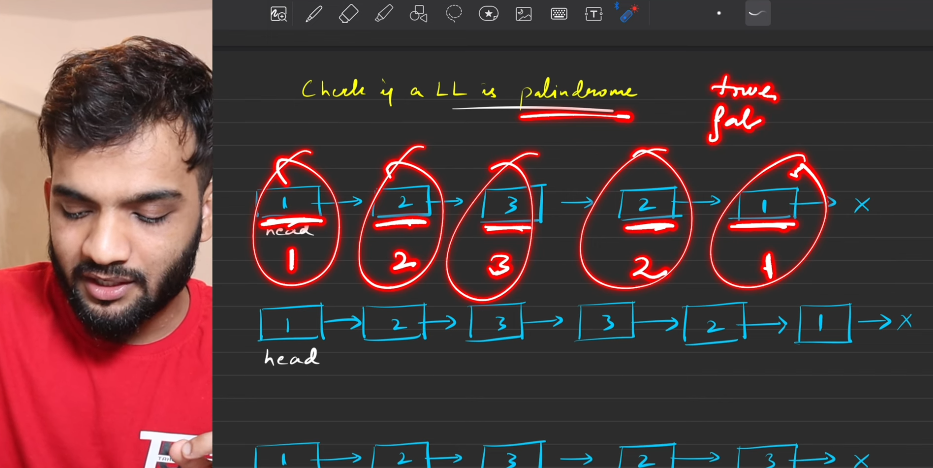 Check if a LL is palindrome
1 2 3 2 1 X
head
1 2 3 2 1
1 2 3 3 2 1 X
head
1 2 3 2 3 X